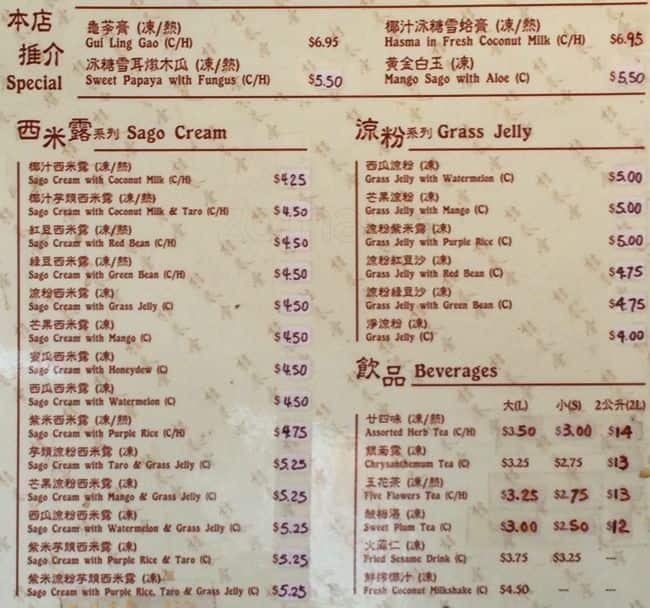 本店
推介
Special
龜苓膏 (凍/熱)
Gui Ling Gao (C/H) $6.95
冰糖雪耳燉木瓜 (凍/熱)
Sweet Papaya with Fungus (C/H) $5.50
椰汁冰糖雪蛤膏 (凍/熱)
Hasma in Fresh Coconut Milk (C/H) $6.95
黃金白玉 (凍)
Mango Sago with Aloe (C) $5.50
西米露系列 Sago Cream
椰汁西米露 (凍/熱)
Sago Cream with Coconut Milk (C/H) $4.25
椰汁芋頭西米露 (凍/熱)
Sago Cream with Coconut Milk & Taro (C/H) $4.50
紅豆西米露 (凍/熱)
Sago Cream with Red Bean (C/H) $4.50
綠豆西米露 (凍/熱)
Sago Cream with Green Bean (C/H) $4.50
涼粉西米露 (凍)
Sago Cream with Grass Jelly (C) $4.50
芒果西米露 (凍)
Sago Cream with Mango (C) $4.50
蜜瓜西米露 (凍)
Sago Cream with Honeydew (C) $4.50
西瓜西米露 (凍)
Sago Cream with Watermelon (C) $4.50
紫米西米露 (凍/熱)
Sago Cream with Purple Rice (C/H) $4.75
芋頭涼粉西米露 (凍)
Sago Cream with Taro & Grass Jelly (C) $5.25
芒果涼粉西米露 (凍)
Sago Cream with Mango & Grass Jelly (C) $5.25
西瓜涼粉西米露 (凍)
Sago Cream with Watermelon & Grass Jelly (C) $5.25
紫米芋頭西米露 (凍)
Sago Cream with Purple Rice & Taro (C) $5.25
紫米涼粉芋頭西米露 (凍)
Sago Cream with Purple Rice, Taro & Grass Jelly (C) $5.25
涼粉系列 Grass Jelly
西瓜涼粉 (凍)
Grass Jelly with Watermelon (C) $5.00
芒果涼粉 (凍)
Grass Jelly with Mango (C) $5.00
涼粉紫米露 (凍)
Grass Jelly with Purple Rice (C) $5.00
涼粉紅豆沙 (凍)
Grass Jelly with Red Bean (C) $4.75
涼粉綠豆沙 (凍)
Grass Jelly with Green Bean (C) $4.75
淨涼粉 (凍)
Grass Jelly (C) $4.00
飲品 Beverages
大(L) 小(S) 2公升(2L)
廿四味 (凍/熱)
Assorted Herb Tea (C/H) $3.50 $3.00 $14
銀菊露 (凍)
Chrysanthemum Tea (C) $3.25 $2.75 $13
五花茶 (凍/熱)
Five Flowers Tea (C/H) $3.25 $2.75 $13
酸梅湯 (凍)
Sweet Plum Tea (C) $3.00 $2.50 $12
火麻仁 (凍)
Fried Sesame Drink (C) $3.75 $3.25 ---
鮮榨椰汁 (凍)
Fresh Coconut Milkshake (C) $4.50 --- ---